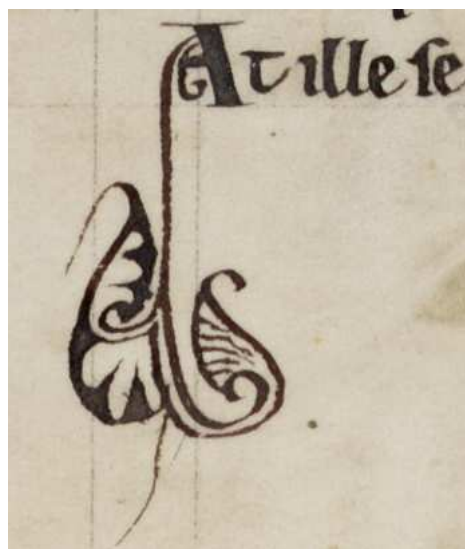 At ille se